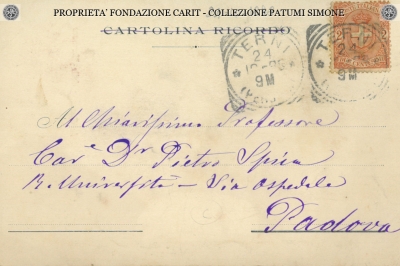 PROPRIETA' FONDAZIONE CARIT - COLLEZIONE PATUMI SIMONE
CARTOLINA RICORDO
TERNI
24
9M
TERNI
24
9M
Al Chiarissimo Professore
Cav.e Dr Pietro Spica
R. Università - Via Ospedale
Padova